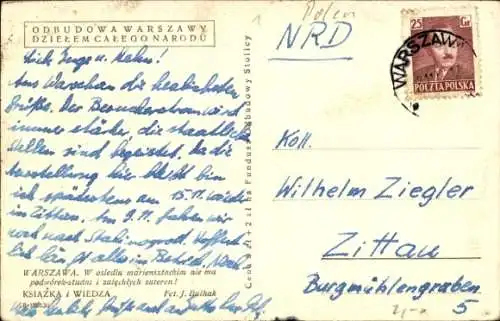 ODBUDOWA WARSZAWY
DZIEŁEM CAŁEGO NARODU
Lieb Inge u.
Aus Warschau die herzlichsten
Grüße. Der Besucherstrom wird
immer stärker, die staatlich
Stellen sind begeistert. Da die
Ausstellung hier bleibt bin
ich spätestens am 15.11. wieder
in Zittau. Am 9.11. fahren wir
noch nach Stalinogrod. Hoffent-
lich läuft alles im Betrieb.
WARSZAWA. W osiedlu mariensztackim nie ma
podwórek-studni i zatęchłych suteren!
KSIĄŻKA i WIEDZA Fot. J. Bułhak
Cena zł 2 + 2 zł na Fundusz Odbudowy Stolicy
Polen
NRD
25 Gr
POCZTA POLSKA
WARSZAWA
Koll.
Wilhelm Ziegler
Zittau
Burgmühlengraben
5